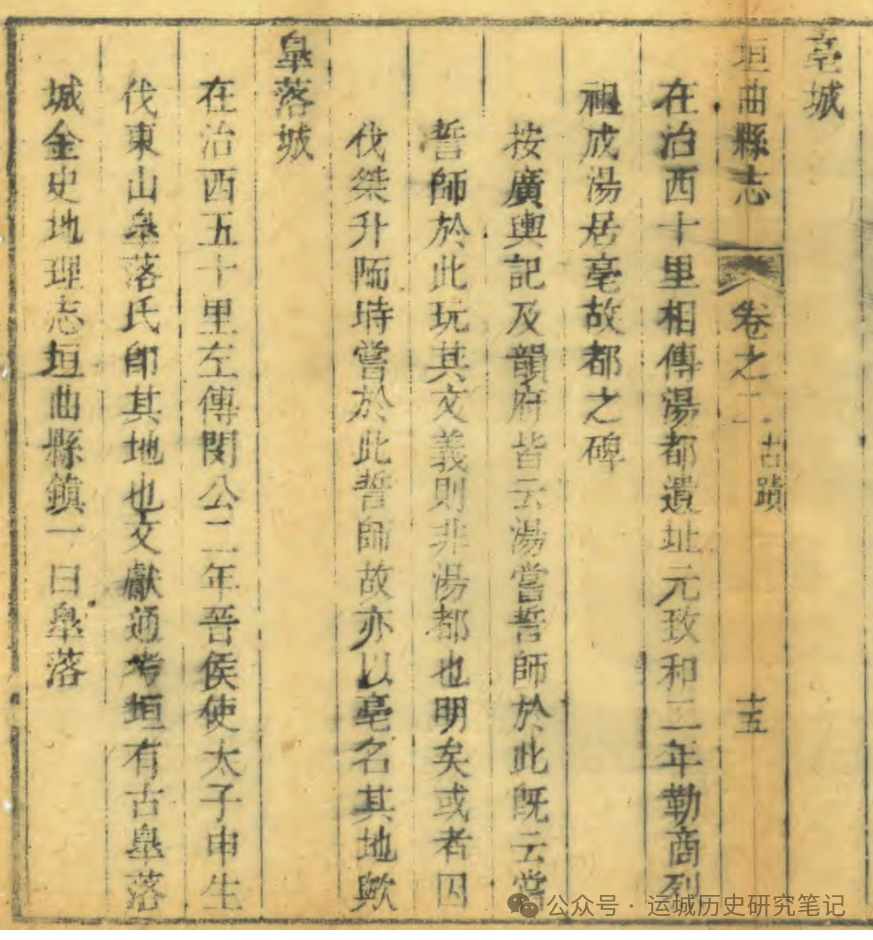 亳城
垣曲縣志 卷之二 古蹟 十五
在治西十里相傳湯都遺址元致和二年勒商烈
祖成湯居亳故都之碑
按廣輿記及韻府皆云湯嘗誓師於此既云嘗
誓師於此玩其文義則非湯都也明矣或者因
伐桀升陑時嘗於此誓師故亦以亳名其地歟
皐落城
在治西五十里左傳閔公二年晉侯使太子申生
伐東山皐落氏卽其地也文獻通考垣有古皐落
城金史地理志垣曲縣鎮一曰皐落
公众号 · 运城历史研究笔记